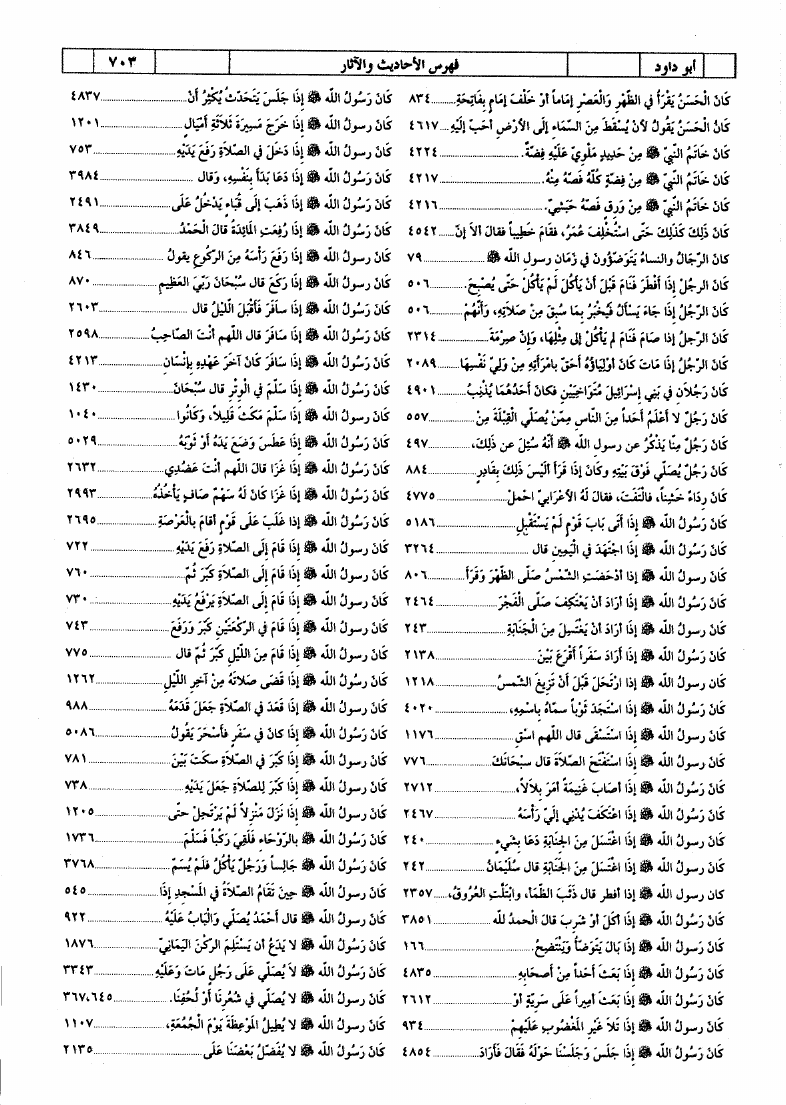 أبو داود فهرس الأحاديث والآثار ٧٠٣
كَانَ الْحَسَنُ يَقْرَأُ في الظُّهْرِ وَالْعَصْرِ إِمَاماً أوْ خَلْفَ إمَامٍ بِفَاتِحَةِ ٨٣٤
كَانَ الْحَسَنُ يَقُولُ لأنْ يُسْقَطَ مِنَ السَّمَاءِ إلَى الأرْضِ أحَبُّ إلَيْهِ ٤٦١٧
كَانَ خَاتَمُ النَّبيِّ ﷺ مِنْ حَدِيدٍ مَلْوِيٌّ عَلَيْهِ فِضَّةٌ. ٤٢٢٤
كَانَ خَاتَمُ النَّبيِّ ﷺ مِنْ فِضَّةٍ كُلُّهُ فَصُّهُ مِنْهُ. ٤٢١٧
كَانَ خَاتَمُ النَّبيِّ ﷺ مِنْ وَرِقٍ فَصُّهُ حَبَشِيٌّ. ٤٢١٦
كَانَ ذَلِكَ كَذَلِكَ حَتَّى اسْتُخْلِفَ عُمَرُ، فقَامَ خَطِيباً فقالَ ألاَ إنَّ ٤٥٤٢
كانَ الرِّجَالُ والنساءُ يَتَوَضَّؤُونَ في زَمَانِ رسولِ الله ﷺ ٧٩
كانَ الرجُلُ إذَا أفْطَرَ فَنَامَ قَبْلَ أنْ يَأْكُلَ لَمْ يَأْكُلْ حَتَّى يُصْبِحَ ٥٠٦
كانَ الرَّجُلُ إذَا جَاءَ يَسْأَلُ فَيُخْبَرُ بِمَا سُبِقَ مِنْ صَلاَتِهِ، وَأَنَّهُمْ ٥٠٦
كانَ الرّجلُ إذَا صامَ فَنَامَ لم يَأْكُلْ إلى مِثْلِهَا، وَإنّ صِرْمَةَ ٢٣١٤
كَانَ الرّجُلُ إذَا مَاتَ كَانَ أوْلِيَاؤُهُ أحَقَّ بامْرَأتِهِ مِنْ وَلِيّ نَفْسِهَا ٢٠٨٩
كَانَ رَجُلاَنِ في بَنِي إسْرَائِيلَ مُتَوَاخِيَيْنِ فكَانَ أحَدُهُمَا يُذْنِبُ ٤٩٠١
كانَ رَجُلٌ لا أعْلَمُ أحَداً مِنَ النّاسِ مِمّنْ يُصَلّي الْقِبْلَةَ مِنْ ٥٥٧
كانَ رَجُلٌ مِنَّا يَذْكُرُ عن رسولِ الله ﷺ أنَّهُ سُئِلَ عن ذلِكَ، ٤٩٧
كَانَ رَجُلٌ يُصَلِّي فَوْقَ بَيْتِهِ وكَانَ إذَا قَرَأَ ألَيْسَ ذَلِكَ بِقَادِرٍ ٨٨٤
كَانَ رِدَاءُهُ خَشِناً، فالْتَفَتَ، فقالَ لَهُ الأعْرَابيّ احْمِلْ ٤٧٧٥
كَانَ رَسُولُ الله ﷺ إذَا أتَى بَابَ قَوْمٍ لَمْ يَسْتَقْبِلِ ٥١٨٦
كَانَ رَسُولُ الله ﷺ إذَا اجْتَهَدَ في الْيَمِينِ قال ٣٢٦٤
كَانَ رسولُ الله ﷺ إذَا أدْحَضَتِ الشَّمْسُ صَلَّى الظُّهْرَ وَقَرَأَ ٨٠٦
كَانَ رَسُولُ الله ﷺ إذَا أرَادَ أنْ يَعْتَكِفَ صَلَّى الْفَجْرَ ٢٤٦٤
كَانَ رَسُولُ الله ﷺ إذَا أرَادَ أنْ يَغْتَسِلَ مِنَ الْجَنَابَةِ ٢٤٣
كَانَ رَسُولُ الله ﷺ إذَا أرَادَ سَفَراً أقْرَعَ بَيْنَ ٢١٣٨
كان رسولُ الله ﷺ إذا ارْتَحَلَ قَبْلَ أنْ تَزِيغَ الشّمسُ ١٢١٨
كَانَ رَسُولُ الله ﷺ إذَا اسْتَجَدَّ ثَوْباً سمّاهُ بِاسْمِهِ، ٤٠٢٠
كَانَ رَسُولُ الله ﷺ إذا اسْتَسْقَى قال اللهم اسْقِ ١١٧٦
كَانَ رَسُولُ الله ﷺ إذَا اسْتَفْتَحَ الصّلاَةَ قال سُبْحَانَكَ ٧٧٦
كَانَ رَسُولُ الله ﷺ إذَا أصَابَ غَنِيمَةً أمَرَ بِلاَلاً، ٢٧١٢
كَانَ رَسُولُ الله ﷺ إذَا اعْتَكَفَ يُدْنِي إلَيّ رَأْسَهُ ٢٤٦٧
كانَ رسولُ الله ﷺ إذَا اغْتَسَلَ مِنَ الجَنَابَةِ دَعَا بِشَيْءٍ ٢٤٠
كانَ رسولُ الله ﷺ إذَا اغْتَسَلَ مِنَ الجَنَابَةِ قال سُلَيْمانُ ٢٤٢
كان رسول الله ﷺ إذا أفطر قال ذَهَبَ الظّمَأ، وابْتَلَّتِ العُرُوقُ، ٢٣٥٧
كَانَ رَسُولُ الله ﷺ إذَا أكَلَ أوْ شَرِبَ قالَ الْحَمدُ لله ٣٨٥١
كَانَ رَسُولُ الله ﷺ إذَا بَالَ يَتَوَضّأُ وَيَنْتَضِحُ ١٦٦
كَانَ رَسُولُ الله ﷺ إذَا بَعَثَ أحَداً مِنْ أصْحَابِهِ ٤٨٣٥
كَانَ رَسُولُ الله ﷺ إذَا بَعَثَ أمِيراً عَلَى سَرِيّةٍ أوْ ٢٦١٢
كَانَ رَسُولُ الله ﷺ إذَا تَلاَ غَيْرِ المَغْضُوبِ عَلَيْهِمْ ٩٣٤
كَانَ رَسُولُ الله ﷺ إذَا جَلَسَ وَجَلَسْنَا حَوْلَهُ فَقَالَ فَأرَادَ ٤٨٥٤
كَانَ رَسُولُ الله ﷺ إذَا جَلَسَ يَتَحَدّثُ يُكْثِرُ أنْ ٤٨٣٧
كَانَ رَسُولُ الله ﷺ إذَا خَرَجَ مَسِيرَةَ ثَلاَثَةِ أمْيَالٍ ١٢٠١
كَانَ رَسُولُ الله ﷺ إذَا دَخَلَ في الصّلاَةِ رَفَعَ يَدَيْهِ ٧٥٣
كَانَ رَسُولُ الله ﷺ إذَا دَعَا بَدَأَ بِنَفْسِهِ، وَقال ٣٩٨٤
كَانَ رَسُولُ الله ﷺ إذَا ذَهَبَ إلَى قُبَاءٍ يَدْخُلُ عَلَى ٢٤٩١
كَانَ رَسُولُ الله ﷺ إذَا رُفِعَتِ المَائِدَةُ قالَ الْحَمْدُ ٣٨٤٩
كانَ رسولُ الله ﷺ إذَا رَفَعَ رَأْسَهُ مِنَ الرّكُوعِ يقولُ ٨٤٦
كَانَ رَسُولُ الله ﷺ إذَا رَكَعَ قال سُبْحَانَ رَبِّيَ الْعَظِيمِ ٨٧٠
كَانَ رَسُولُ الله ﷺ إذَا سافَرَ فَأقْبَلَ اللّيْلُ قال ٢٦٠٣
كَانَ رَسُولُ الله ﷺ إذَا سَافَرَ قال اللهم أنْتَ الصّاحِبُ ٢٥٩٨
كَانَ رَسُولُ الله ﷺ إذَا سَافَرَ كَانَ آخِرَ عَهْدِهِ بِإنْسَانٍ ٤٢١٣
كَانَ رَسُولُ الله ﷺ إذَا سَلّمَ في الْوِتْرِ قال سُبْحَانَ ١٤٣٠
كانَ رسولُ الله ﷺ إذَا سَلّمَ مَكَثَ قَلِيلاً، وكَانُوا ١٠٤٠
كَانَ رَسُولُ الله ﷺ إذَا عَطَسَ وَضَعَ يَدَهُ أوْ ثَوْبَهُ ٥٠٢٩
كَانَ رَسُولُ الله ﷺ إذَا غَزَا قالَ اللهم أنْتَ عَضُدِي ٢٦٣٢
كَانَ رَسُولُ الله ﷺ إذَا غَزَا كَانَ لَهُ سَهْمٌ صَافٍ يَأْخُذُهُ ٢٩٩٣
كَانَ رَسُولُ الله ﷺ إذا غَلَبَ عَلَى قَوْمٍ أقامَ بالْعَرْصَةِ ٢٦٩٥
كَانَ رَسُولُ الله ﷺ إذَا قَامَ إلَى الصّلاَةِ رَفَعَ يَدَيْهِ ٧٢٢
كَانَ رَسُولُ الله ﷺ إذَا قَامَ إلَى الصّلاَةِ كَبّرَ ثُمّ ٧٦٠
كَانَ رَسُولُ الله ﷺ إذَا قَامَ إلَى الصّلاَةِ يَرْفَعُ يَدَيْهِ ٧٣٠
كَانَ رَسُولُ الله ﷺ إذَا قَامَ في الرّكْعَتَيْنِ كَبّرَ وَرَفَعَ ٧٤٣
كَانَ رَسُولُ الله ﷺ إذَا قَامَ مِنَ اللّيْلِ كَبّرَ ثُمّ قال ٧٧٥
كَانَ رسولُ الله ﷺ إذَا قَضَى صَلاَتَهُ مِنْ آخِرِ اللّيْلِ ١٢٦٢
كَانَ رَسُولُ الله ﷺ إذَا قَعَدَ في الصّلاَةِ جَعَلَ قَدَمَهُ ٩٨٨
كَانَ رَسُولُ الله ﷺ إذَا كانَ في سَفَرٍ فأسْحَرَ يَقُولُ ٥٠٨٦
كَانَ رَسُولُ الله ﷺ إذَا كَبّرَ في الصّلاَةِ سَكَتَ بَيْنَ ٧٨١
كَانَ رَسُولُ الله ﷺ إذَا كَبّرَ لِلصّلاَةِ جَعَلَ يَدَيْهِ ٧٣٨
كَانَ رسولُ الله ﷺ إذَا نَزَلَ مَنْزِلاً لَمْ يَرْتَحِلْ حتى ١٢٠٥
كَانَ رَسُولُ الله ﷺ بالرّوْحَاءِ فَلَقِيَ رَكْباً فَسَلّمَ ١٧٣٦
كَانَ رَسُولُ الله ﷺ جَالِساً وَرَجُلٌ يَأْكُلُ فَلَمْ يُسَمّ ٣٧٦٨
كَانَ رسولُ الله ﷺ حِينَ تُقَامُ الصّلاَةُ في المَسْجِدِ إذَا ٥٤٥
كَانَ رَسُولُ الله ﷺ قال أحْمَدُ يُصَلّي وَالْبَابُ عَلَيْهِ ٩٢٢
كَانَ رَسُولُ الله ﷺ لا يَدَعُ أن يَسْتَلِمَ الرّكْنَ الْيَمَانيّ ١٨٧٦
كَانَ رَسُولُ الله ﷺ لاَ يُصَلّي عَلَى رَجُلٍ مَاتَ وَعَلَيْهِ ٣٣٤٣
كَانَ رسولُ الله ﷺ لا يُصَلّي في شُعُرِنَا أوْ لُحُفِنَا. ٣٦٧،٦٤٥
كَانَ رَسُولُ الله ﷺ لا يُطِيلُ المَوْعِظَةَ يَوْمَ الْجُمُعَةِ، ١١٠٧
كَانَ رَسُولُ الله ﷺ لا يُفَضّلُ بَعْضَنَا عَلَى ٢١٣٥